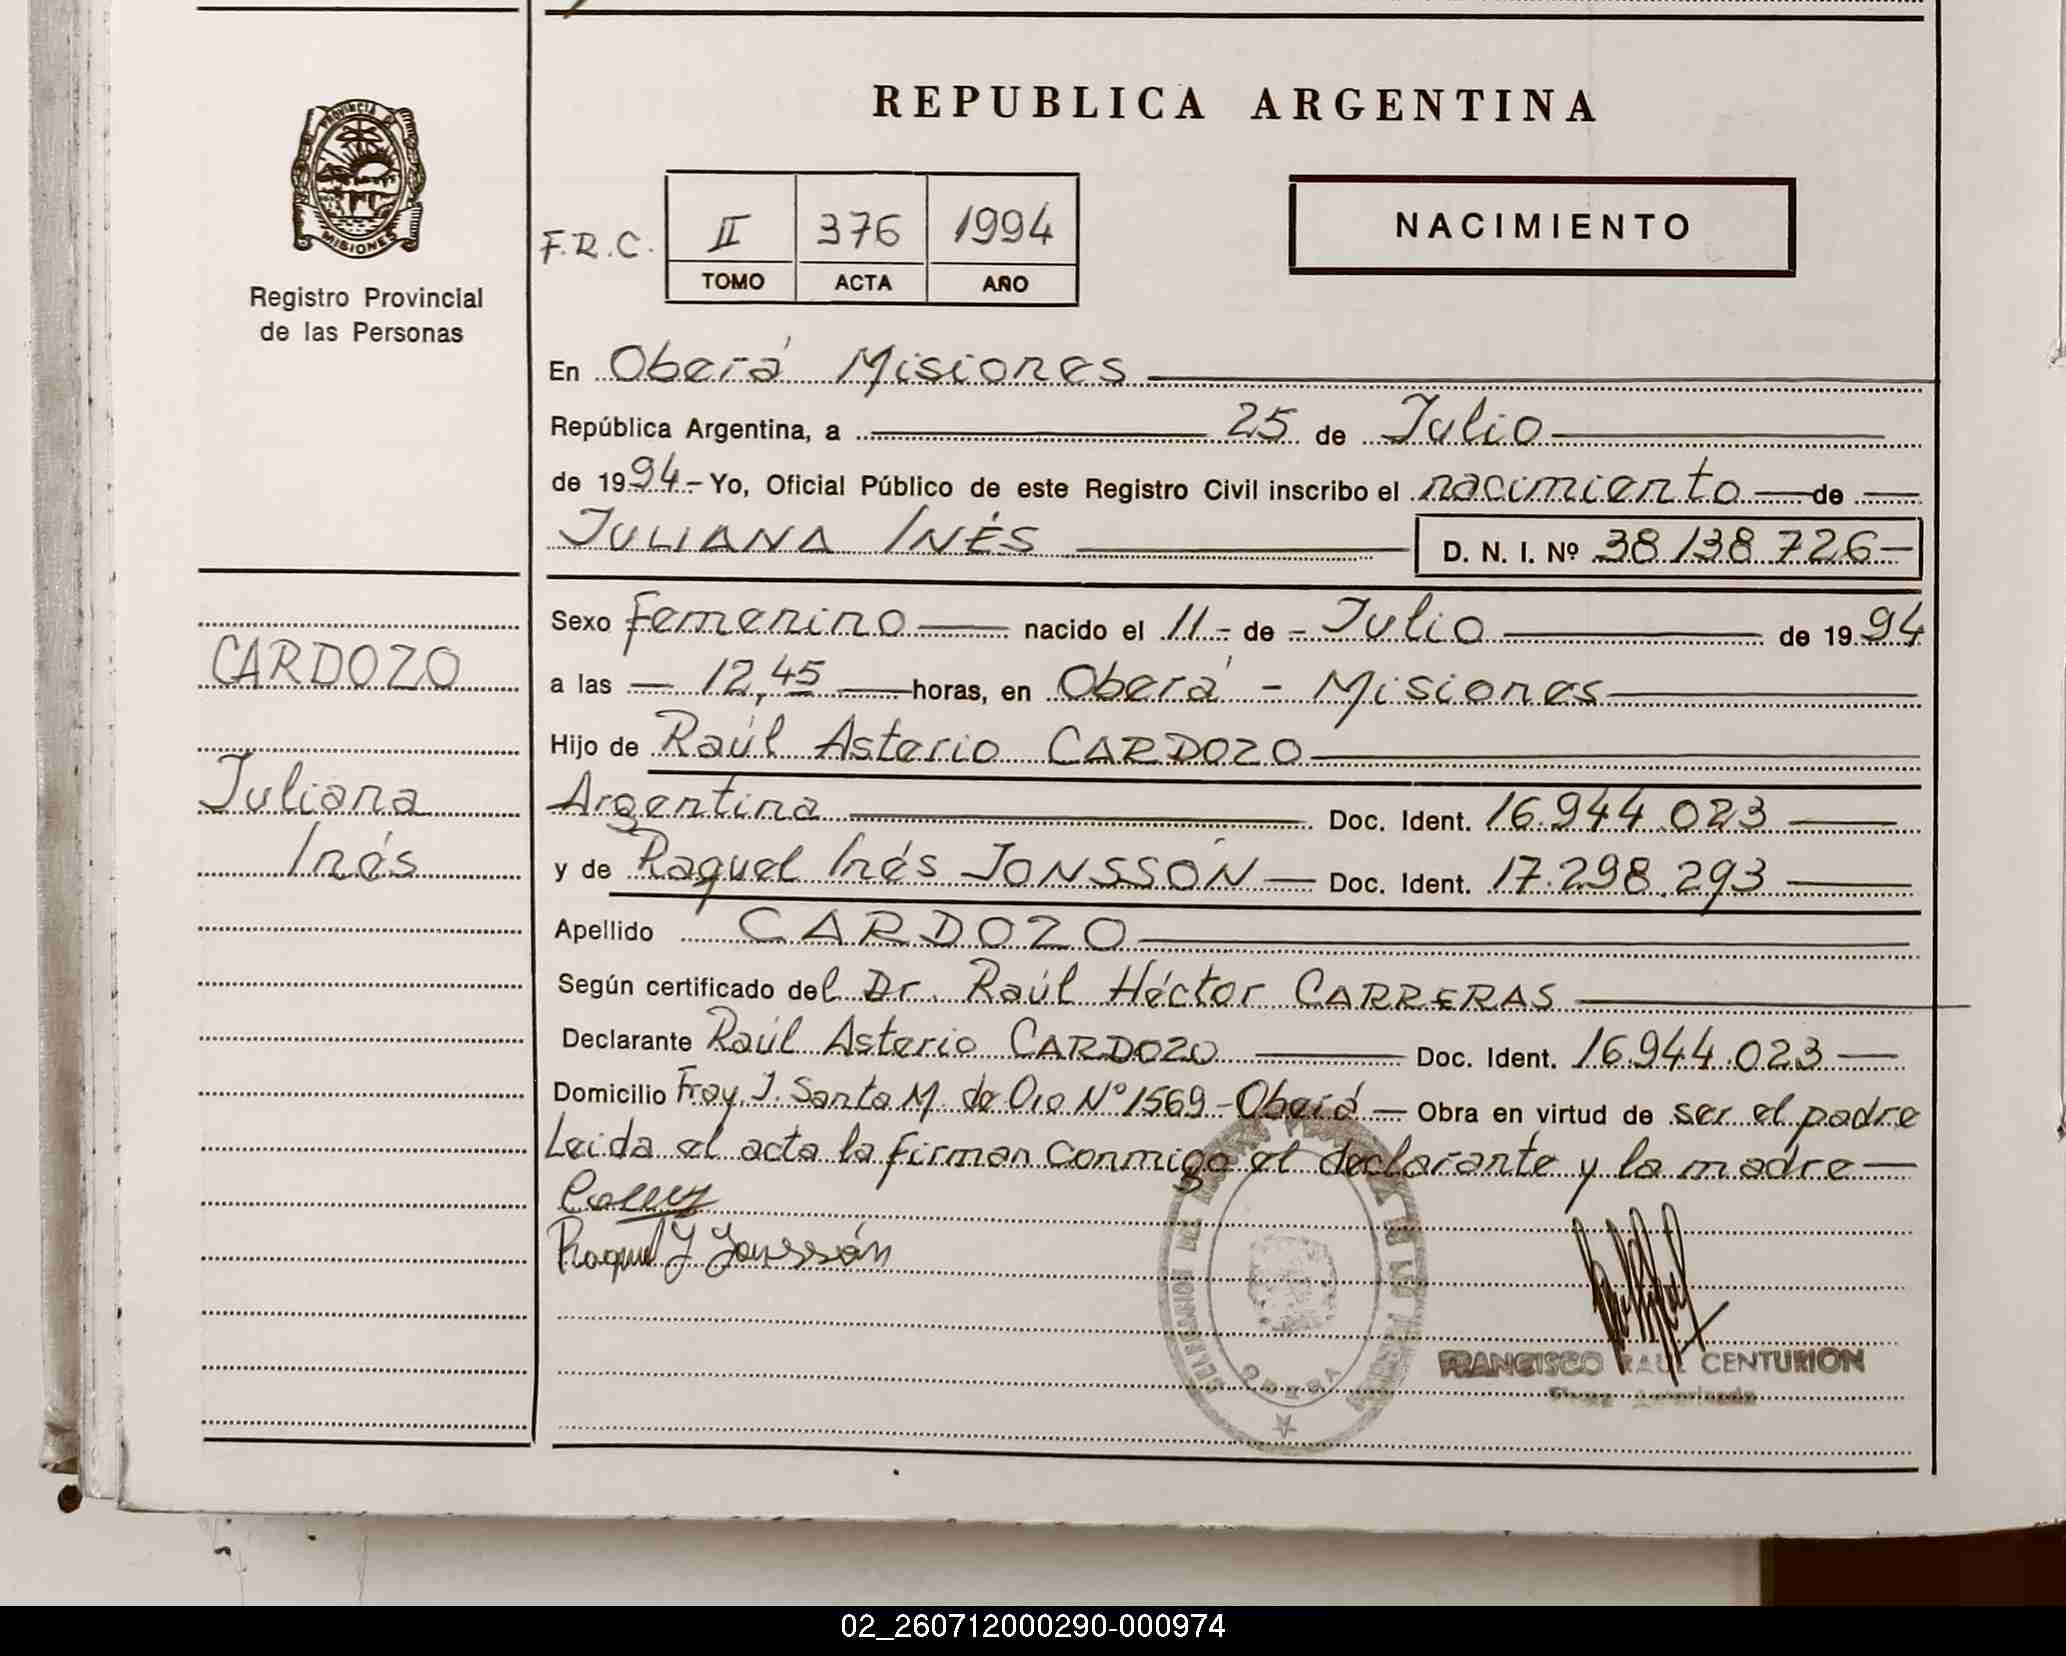 PROVINCIA DE
MISIONES
Registro Provincial
de las Personas
REPUBLICA ARGENTINA
F.R.C. II 376 1994
TOMO ACTA AÑO
NACIMIENTO
En Oberá Misiones
República Argentina, a 25 de Julio
de 1994.- Yo, Oficial Público de este Registro Civil inscribo el nacimiento de
JULIANA INÉS D. N. I. Nº 38.138.726-
CARDOZO
Juliana
Inés
Sexo Femenino nacido el 11- de - Julio de 1994
a las 12,45 horas, en Oberá - Misiones
Hijo de Raúl Asterio CARDOZO
Argentina Doc. Ident. 16.944.023
y de Raquel Inés JONSSÓN Doc. Ident. 17.298.293
Apellido CARDOZO
Según certificado del Dr. Raúl Héctor CARRERAS
Declarante Raúl Asterio CARDOZO Doc. Ident. 16.944.023
Domicilio Fray J. Santa M. de Oro Nº 1569 - Oberá - Obra en virtud de ser el padre
Leida el acta la firman conmigo el declarante y la madre
Raquel I Jonssón
OBERA
FRANCISCO RAUL CENTURION
02_260712000290-000974